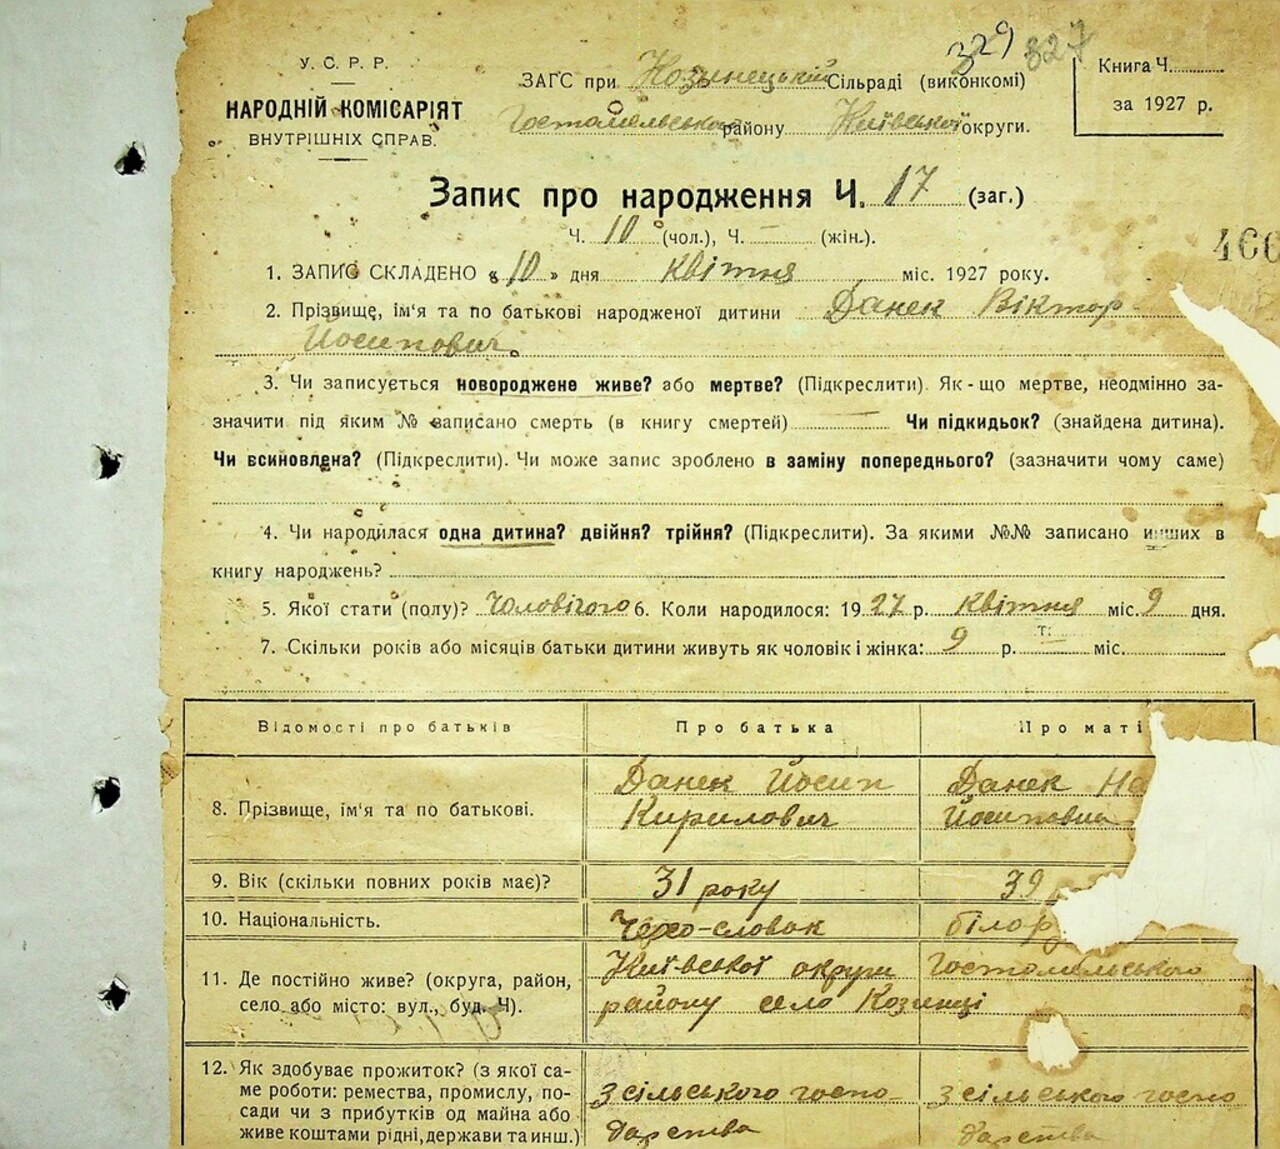 329 327
У. С. Р. Р.
НАРОДНІЙ КОМІСАРІЯТ
ВНУТРІШНІХ СПРАВ.
ЗАГС при Козинецькій Сільраді (виконкомі)
Гостомельського району Київської округи.
Книга Ч.
за 1927 р.
Запис про народження Ч. 17 (заг.)
Ч. 10 (чол.), Ч. — (жін.).
466
1. ЗАПИС СКЛАДЕНО « 10 » дня квітня міс. 1927 року.
2. Прізвище, ім'я та по батькові народженої дитини Данек Віктор
Йосипович.
3. Чи записується новороджене живе? або мертве? (Підкреслити). Як-що мертве, неодмінно за-
значити під яким № записано смерть (в книгу смертей) — Чи підкидьок? (знайдена дитина).
Чи всиновлена? (Підкреслити). Чи може запис зроблено в заміну попереднього? (зазначити чому саме)
4. Чи народилася одна дитина? двійня? трійня? (Підкреслити). За якими №№ записано инших в
книгу народжень?
5. Якої стати (полу)? Чоловічого 6. Коли народилося: 1927 р. квітня міс. 9 дня.
7. Скільки років або місяців батьки дитини живуть як чоловік і жінка: 9 р. — міс.
Відомості про батьків Про батька Про маті
8. Прізвище, ім'я та по батькові. Данек Йосип Данек На
Кирилович Йосиповна
9. Вік (скільки повних років має)? 31 року 39
10. Національність. Чехо-словак білор
11. Де постійно живе? (округа, район, Київської округи Гостомельського
село або місто: вул., буд. Ч). району село Козинці
12. Як здобуває прожиток? (з якої са-
ме роботи: ремества, промислу, по- З сільського госпо- З сільського госпо
сади чи з прибутків од майна або дарства дарства
живе коштами рідні, держави та инш.)